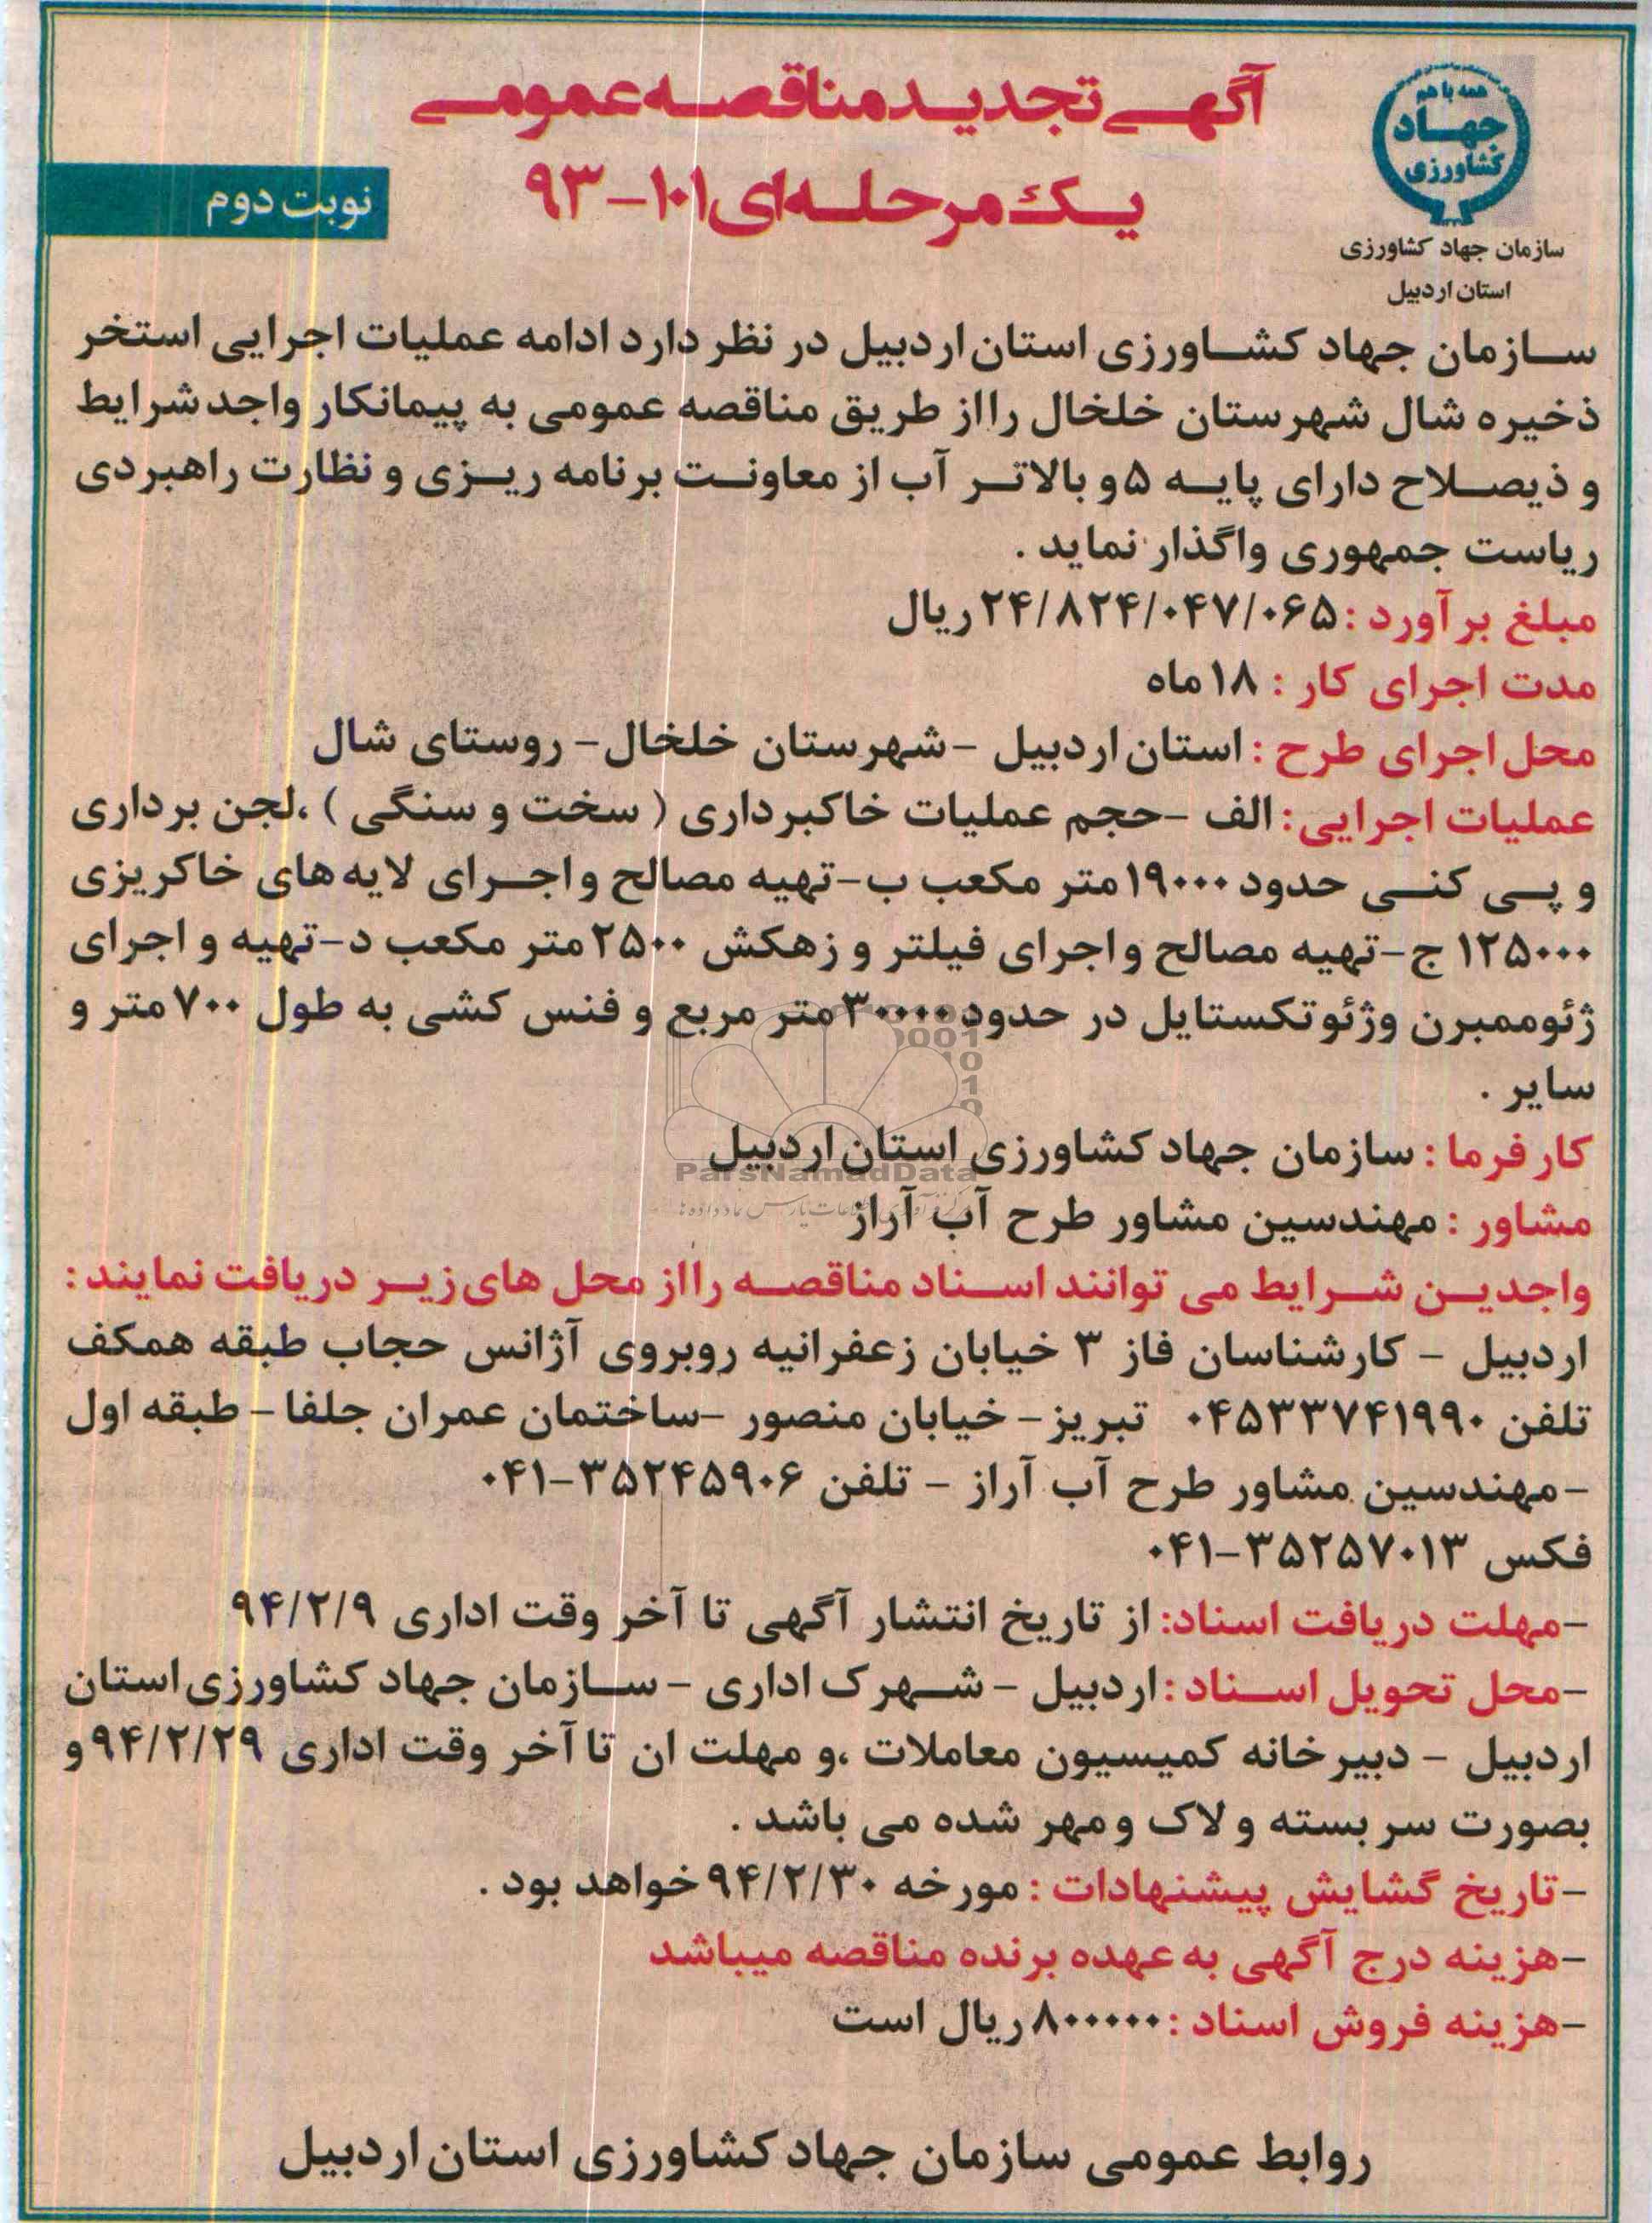 آگهی تجدید مناقصه عمومی
یک مرحله‌ای ۱۰۱-۹۳
نوبت دوم
همه با هم
جهاد
کشاورزی
سازمان جهاد کشاورزی
استان اردبیل
سازمان جهاد کشاورزی استان اردبیل در نظر دارد ادامه عملیات اجرایی استخر
ذخیره شال شهرستان خلخال را از طریق مناقصه عمومی به پیمانکار واجد شرایط
و ذیصلاح دارای پایه ۵ و بالاتر آب از معاونت برنامه ریزی و نظارت راهبردی
ریاست جمهوری واگذار نماید .
مبلغ برآورد : ۲۴/۸۲۴/۰۴۷/۰۶۵ ریال
مدت اجرای کار : ۱۸ ماه
محل اجرای طرح : استان اردبیل - شهرستان خلخال - روستای شال
عملیات اجرایی : الف - حجم عملیات خاکبرداری ( سخت و سنگی ) ، لجن برداری
و پی کنی حدود ۱۹۰۰۰ متر مکعب ب- تهیه مصالح و اجرای لایه های خاکریزی
۱۲۵۰۰۰ ج- تهیه مصالح و اجرای فیلتر و زهکش ۲۵۰۰ متر مکعب د- تهیه و اجرای
ژئوممبرن وژئوتکستایل در حدود ۳۰۰۰۰ متر مربع و فنس کشی به طول ۷۰۰ متر و
سایر .
کارفرما : سازمان جهاد کشاورزی استان اردبیل
ParsNamadData
مشاور : مهندسین مشاور طرح آب آراز
واجدین شرایط می توانند اسناد مناقصه را از محل های زیر دریافت نمایند :
اردبیل - کارشناسان فاز ۳ خیابان زعفرانیه روبروی آژانس حجاب طبقه همکف
تلفن ۰۴۵۳۳۷۴۱۹۹۰ تبریز - خیابان منصور - ساختمان عمران جلفا - طبقه اول
- مهندسین مشاور طرح آب آراز - تلفن ۳۵۲۴۵۹۰۶-۰۴۱
فکس ۳۵۲۵۷۰۱۳-۰۴۱
- مهلت دریافت اسناد: از تاریخ انتشار آگهی تا آخر وقت اداری ۹۴/۲/۹
- محل تحویل اسناد : اردبیل - شهرک اداری - سازمان جهاد کشاورزی استان
اردبیل - دبیرخانه کمیسیون معاملات ، و مهلت ان تا آخر وقت اداری ۹۴/۲/۲۹ و
بصورت سر بسته و لاک و مهر شده می باشد .
- تاریخ گشایش پیشنهادات : مورخه ۹۴/۲/۳۰ خواهد بود .
- هزینه درج آگهی به عهده برنده مناقصه میباشد
- هزینه فروش اسناد : ۸۰۰۰۰۰ ریال است
روابط عمومی سازمان جهاد کشاورزی استان اردبیل